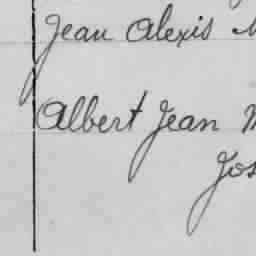 Jean Alexis
Albert Jean
Jos